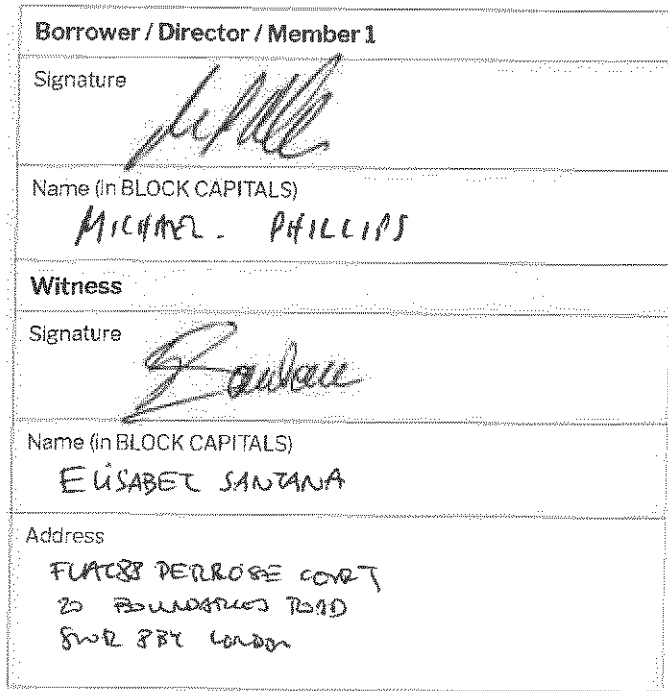 Borrower / Director / Member 1
Signature
Name (in BLOCK CAPITALS)
MICHAEL. PHILLIPS
Witness
Signature
Name (in BLOCK CAPITALS)
ELISABET SANTANA
Address
COURT
20 BOUNDARIES ROAD
LONDON